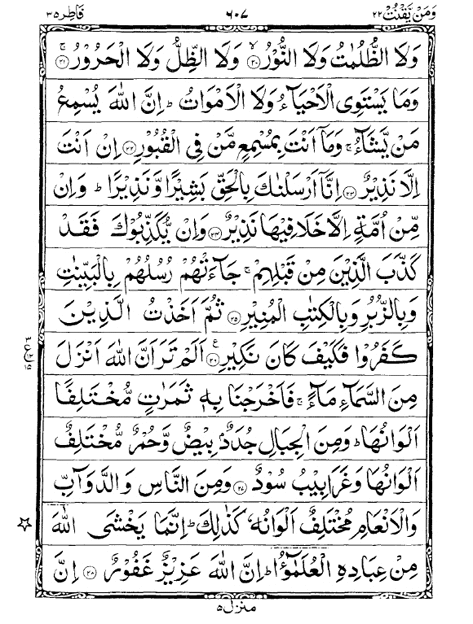 وَمَنۡ يَّقۡنُتۡ ٢٢ ٦٠٧ فَاطِر ٣٥
وَلَا الظُّلُمٰتُ وَلَا النُّوۡرُ ﴿٢٠﴾ وَلَا الظِّلُّ وَلَا الۡحَرُوۡرُ ﴿٢١﴾
وَمَا يَسۡتَوِى الۡاَحۡيَآءُ وَلَا الۡاَمۡوَاتُ ؕ اِنَّ اللّٰهَ يُسۡمِعُ
مَنۡ يَّشَآءُ ۚ وَمَاۤ اَنۡتَ بِمُسۡمِعٍ مَّنۡ فِى الۡقُبُوۡرِ ﴿٢٢﴾ اِنۡ اَنۡتَ
اِلَّا نَذِيۡرٌ ﴿٢٣﴾ اِنَّاۤ اَرۡسَلۡنٰكَ بِالۡحَقِّ بَشِيۡرًا وَّنَذِيۡرًا ؕ وَاِنۡ
مِّنۡ اُمَّةٍ اِلَّا خَلَا فِيۡهَا نَذِيۡرٌ ﴿٢٤﴾ وَاِنۡ يُّكَذِّبُوۡكَ فَقَدۡ
كَذَّبَ الَّذِيۡنَ مِنۡ قَبۡلِهِمۡ ۚ جَآءَتۡهُمۡ رُسُلُهُمۡ بِالۡبَيِّنٰتِ
وَبِالزُّبُرِ وَبِالۡكِتٰبِ الۡمُنِيۡرِ ﴿٢٥﴾ ثُمَّ اَخَذۡتُ الَّذِيۡنَ
كَفَرُوۡا فَكَيۡفَ كَانَ نَكِيۡرِ ﴿٢٦﴾ اَلَمۡ تَرَ اَنَّ اللّٰهَ اَنۡزَلَ
مِنَ السَّمَآءِ مَآءً ۚ فَاَخۡرَجۡنَا بِهٖ ثَمَرٰتٍ مُّخۡتَلِفًا
اَلۡوَانُهَا ؕ وَمِنَ الۡجِبَالِ جُدَدٌۢ بِيۡضٌ وَّحُمۡرٌ مُّخۡتَلِفٌ
اَلۡوَانُهَا وَغَرَابِيۡبُ سُوۡدٌ ﴿٢٧﴾ وَمِنَ النَّاسِ وَالدَّوَآبِّ
وَالۡاَنۡعَامِ مُخۡتَلِفٌ اَلۡوَانُهٗ كَذٰلِكَ ؕ اِنَّمَا يَخۡشَى اللّٰهَ
مِنۡ عِبَادِهِ الۡعُلَمٰٓؤُا ؕ اِنَّ اللّٰهَ عَزِيۡزٌ غَفُوۡرٌ ﴿٢٨﴾ اِنَّ
منزل ٥